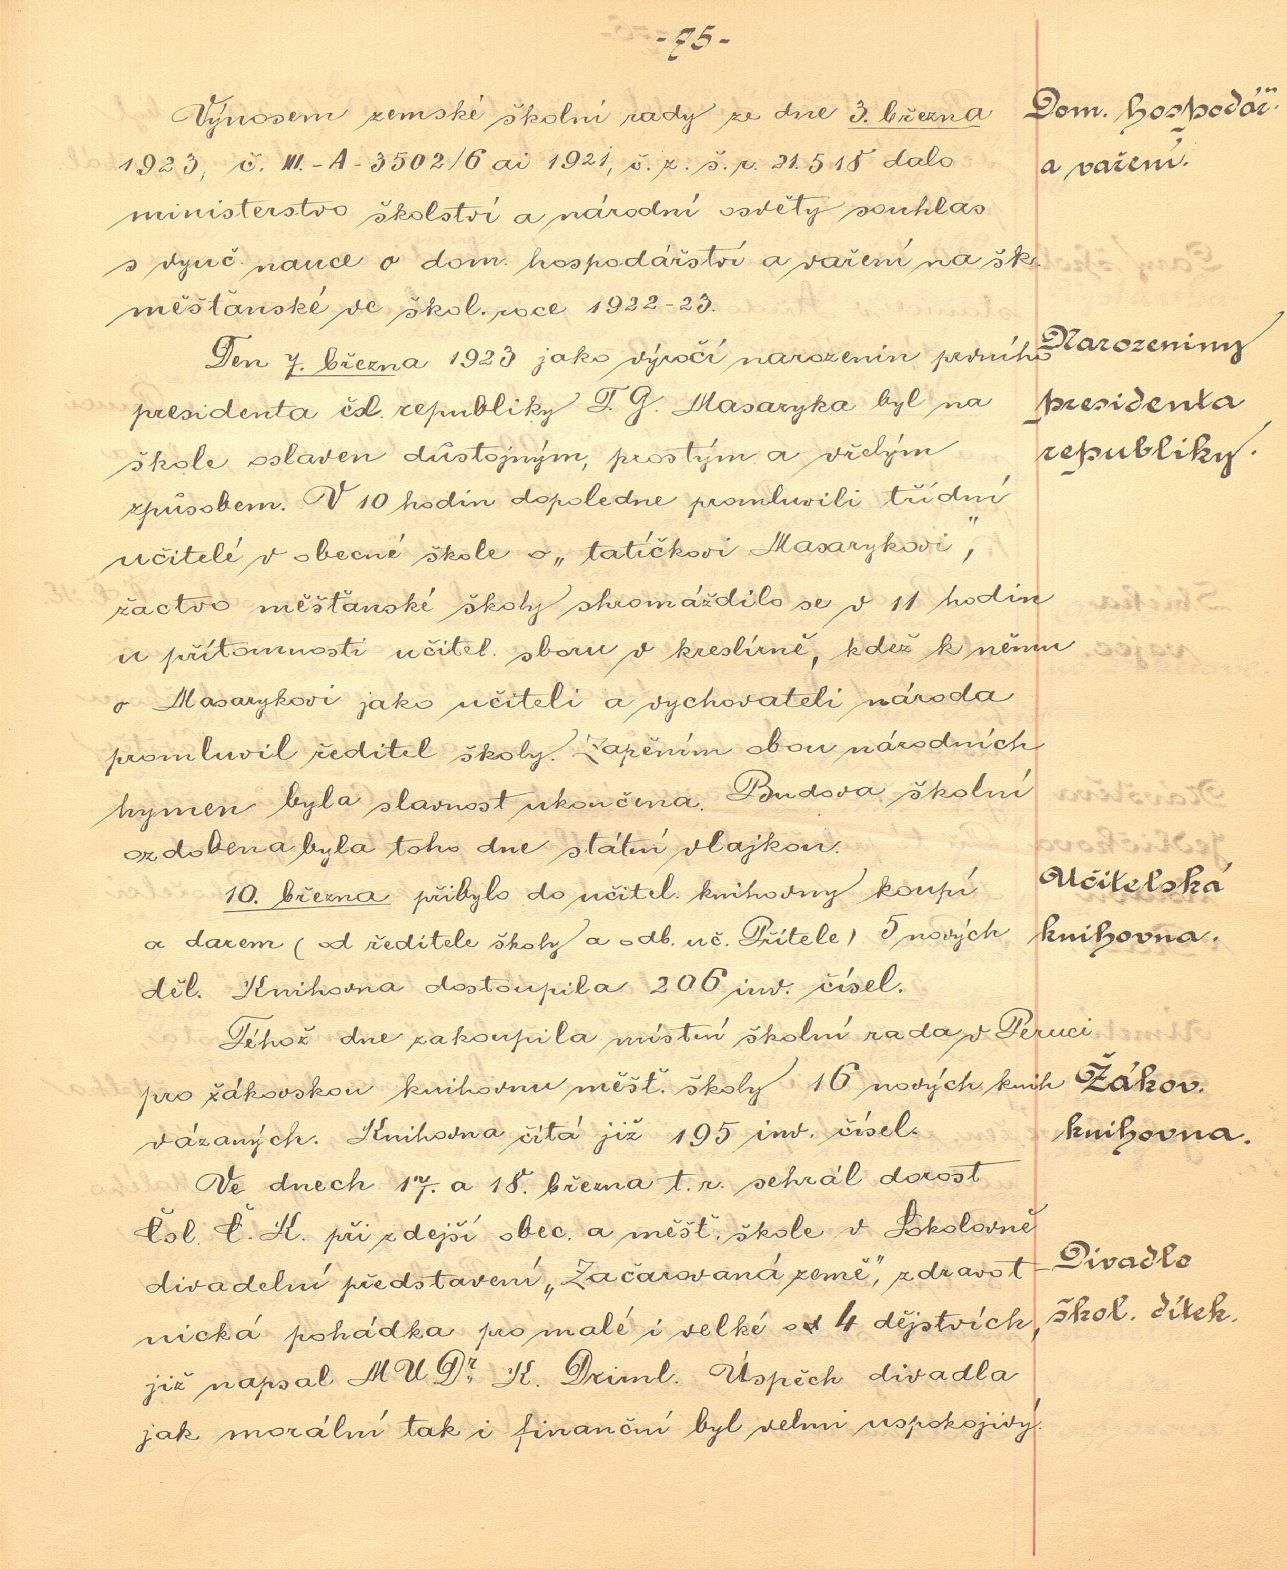 - 75 -
Výnosem zemské školní rady ze dne 3. března
Dom. hospodář.
1923, č. III. - A - 3502/6 ai 1921, č. z. š. r. 21.518 dalo
a vaření.
ministerstvo školství a národní osvěty souhlas
s vyuč. nauce o dom. hospodářství a vaření na šk.
měšťanské ve škol. roce 1922-23.
Den 7. března 1923 jako výročí narozenin prvního
Narozeniny
presidenta čsl. republiky T. G. Masaryka byl na
presidenta
škole oslaven důstojným, prostým a vřelým
republiky.
způsobem. V 10 hodin dopoledne promluvili třídní
učitelé v obecné škole o „tatíčkovi Masarykovi",
žactvo měšťanské školy shromáždilo se v 11 hodin
u přítomnosti učitel. sboru v kreslírně, kdež k němu
o Masarykovi jako učiteli a vychovateli národa
promluvil ředitel školy. Zapěním obou národních
hymen byla slavnost ukončena. Budova školní
ozdobena byla toho dne státní vlajkou.
10. března přibylo do učitel. knihovny koupí
Učitelská
a darem (od ředitele školy a odb. uč. Přítele) 5 nových
knihovna.
děl. Knihovna dostoupila 206 inv. čísel.
Téhož dne zakoupila místní školní rada v Peruci
pro žákovskou knihovnu měšť. školy 16 nových knih
Žákov.
vázaných. Knihovna čítá již 195 inv. čísel.
knihovna.
Ve dnech 17. a 18. března t. r. sehrál dorost
Čsl. Č. K. při zdejší obec. a měšť. škole v Sokolovně
divadelní představení „Začarovaná země", zdravot-
Divadlo
nická pohádka pro malé i velké o 4 dějstvích,
škol. dítek.
již napsal MUDr. K. Driml. Úspěch divadla
jak morální tak i finanční byl velmi uspokojivý.